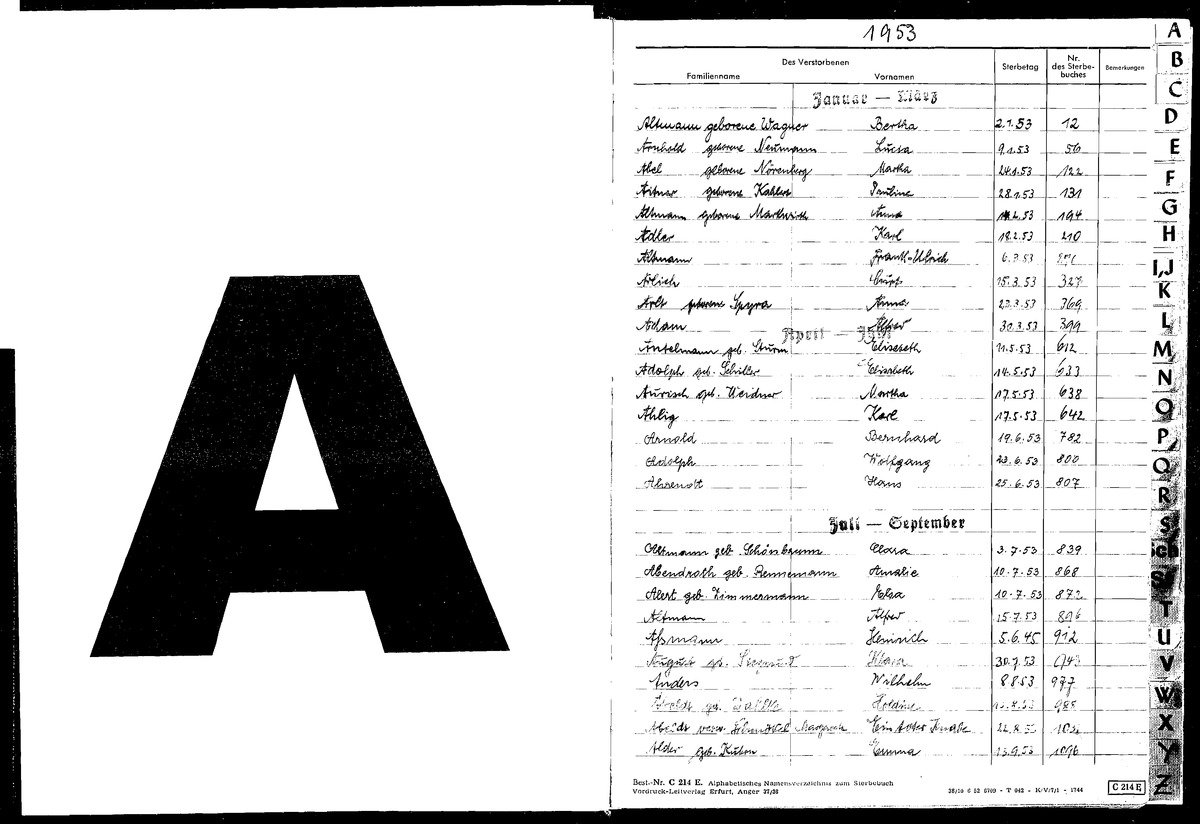 A
1953
Des Verstorbenen
Familienname Vornamen Sterbetag Nr. des Sterbe-buches Bemerkungen
Januar — März
Altmann geborene Wagner Bertha 2.1.53 12
Arnhold geborene Neumann 9.1.53 56
Abel geborene Nörenberg Martha 24.1.53 122
geborene Kahlert Pauline 28.1.53 131
Altmann geborene Anna 2.53 194
Adler Karl 18.2.53 210
Altmann Frank-Ulrich 6.3.53
15.3.53 327
Arlt geborene Spyra Anna 23.3.53 369
Adam Alfred 30.3.53 399
April — Juni
Antelmann geb. Sturm Elisabeth 11.5.53 612
Adolph geb. Schiller Elisabeth 14.5.53 633
Aurisch geb. Weidner Martha 17.5.53 638
Ahlig Karl 17.5.53 642
Arnold Bernhard 19.6.53 782
Adolph Wolfgang 23.6.53 800
Ahrendt Hans 25.6.53 807
Juli — September
Altmann geb. Schönbrunn Clara 3.7.53 839
Abendroth geb. Rennemann Amalie 10.7.53 868
Alert geb. Zimmermann Elsa 10.7.53 872
Altmann Alfred 15.7.53 896
Aßmann Heinrich 5.6.45 912
August geb. Klara 30.7.53
Anders Wilhelm 8.8.53 977
geb. 988
Ein toter Knabe
Alder geb. Kuhn Emma 13.9.53 1096
Best.-Nr. C 214 E. Alphabetisches Namensverzeichnis zum Sterbebuch
Vordruck-Leitverlag Erfurt, Anger 37/38
C 214 E
A
B
C
D
E
F
G
H
I,J
K
L
M
N
O
P
Q
R
S
Sch
St
T
U
V
W
X
Y
Z